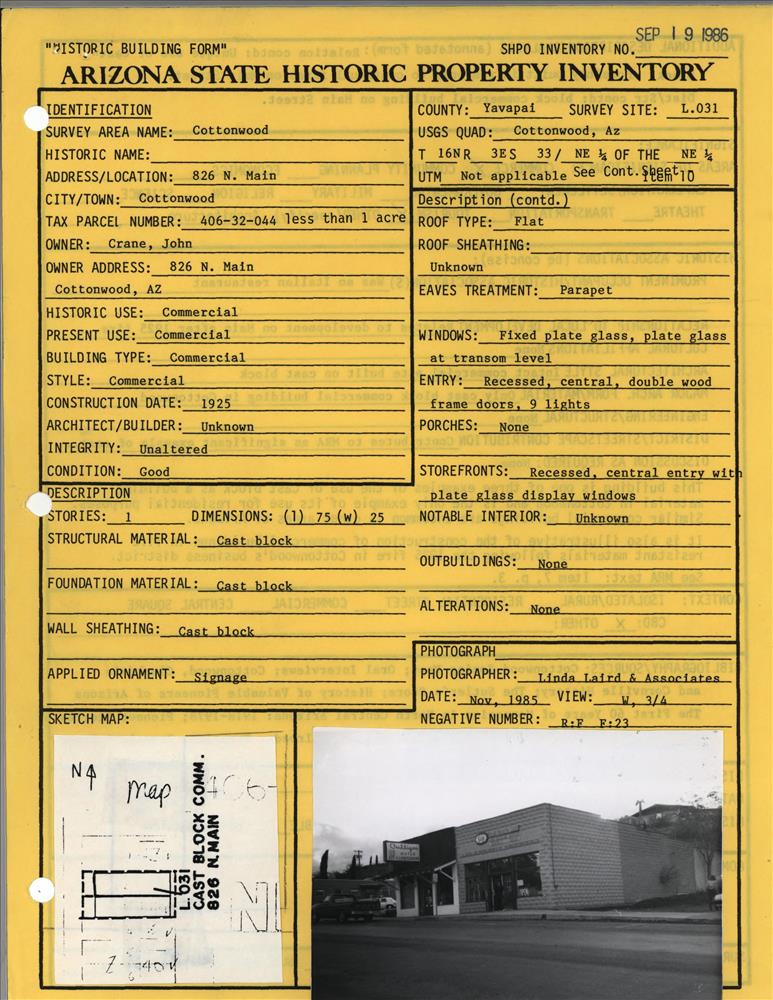 SEP 19 1986
"HISTORIC BUILDING FORM" SHPO INVENTORY NO.
ARIZONA STATE HISTORIC PROPERTY INVENTORY
IDENTIFICATION
SURVEY AREA NAME: Cottonwood
HISTORIC NAME:
ADDRESS/LOCATION: 826 N. Main
CITY/TOWN: Cottonwood
TAX PARCEL NUMBER: 406-32-044 less than 1 acre
OWNER: Crane, John
OWNER ADDRESS: 826 N. Main
Cottonwood, AZ
HISTORIC USE: Commercial
PRESENT USE: Commercial
BUILDING TYPE: Commercial
STYLE: Commercial
CONSTRUCTION DATE: 1925
ARCHITECT/BUILDER: Unknown
INTEGRITY: Unaltered
CONDITION: Good
COUNTY: Yavapai SURVEY SITE: L.031
USGS QUAD: Cottonwood, Az
T 16N R 3E S 33/ NE ¼ OF THE NE ¼
UTM Not applicable See Cont.Sheet Item 10
Description (contd.)
ROOF TYPE: Flat
ROOF SHEATHING:
Unknown
EAVES TREATMENT: Parapet
WINDOWS: Fixed plate glass, plate glass
at transom level
ENTRY: Recessed, central, double wood
frame doors, 9 lights
PORCHES: None
STOREFRONTS: Recessed, central entry with
plate glass display windows
NOTABLE INTERIOR: Unknown
OUTBUILDINGS: None
ALTERATIONS: None
DESCRIPTION
STORIES: 1 DIMENSIONS: (l) 75 (w) 25
STRUCTURAL MATERIAL: Cast block
FOUNDATION MATERIAL: Cast block
WALL SHEATHING: Cast block
APPLIED ORNAMENT: Signage
PHOTOGRAPH
PHOTOGRAPHER: Linda Laird & Associates
DATE: Nov, 1985 VIEW: W, 3/4
NEGATIVE NUMBER: R:F F:23
SKETCH MAP:
N
map 406-
L.031
CAST BLOCK COMM.
826 N.MAIN